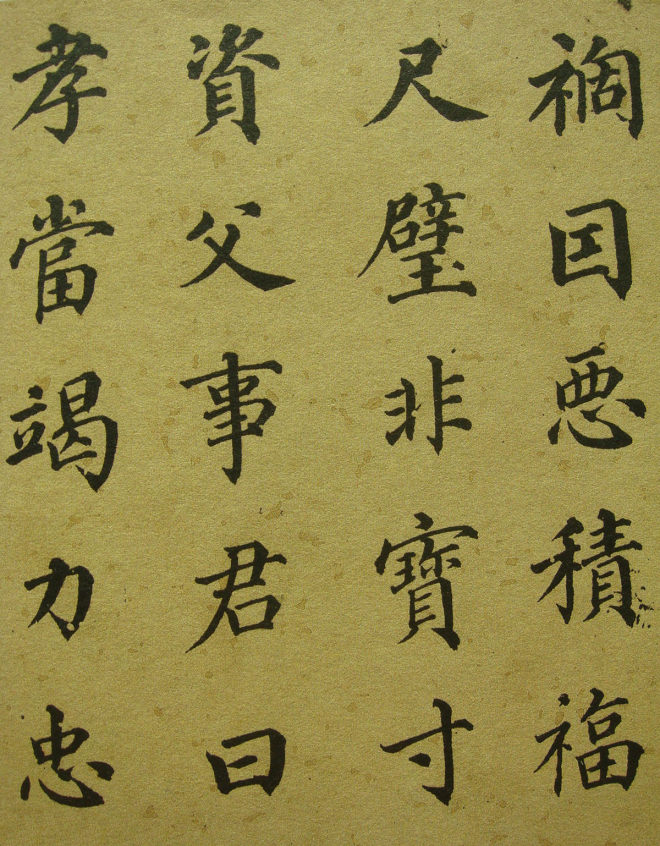 禍囙悪積福
尺璧非寶寸
資父事君曰
孝當竭力忠